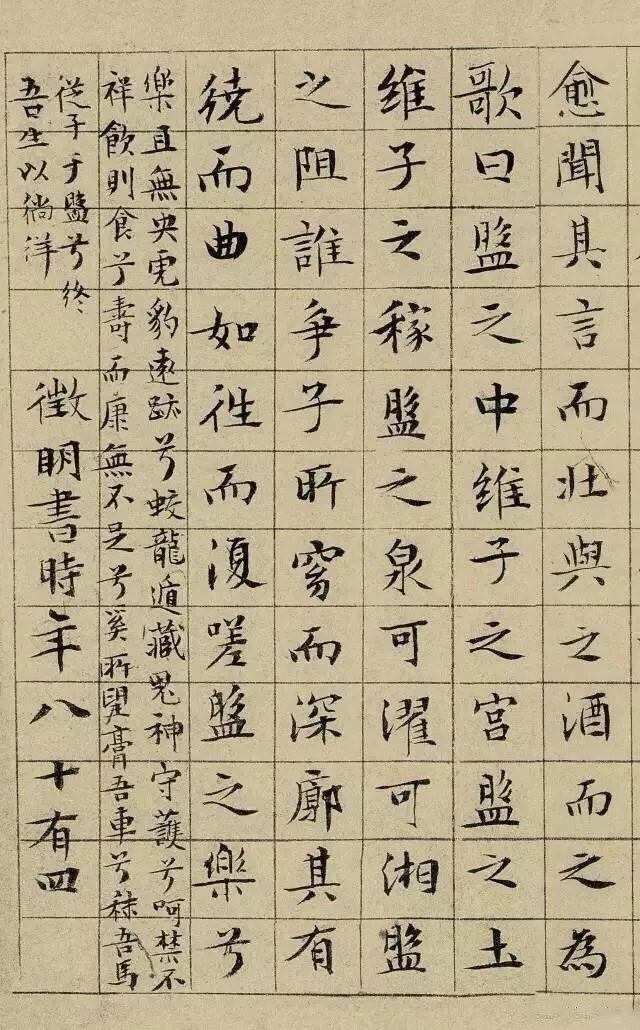 愈聞其言而壯與之酒而之為
歌曰盤之中維子之宮盤之土
維子之稼盤之泉可濯可湘盤
之阻誰爭子所窈而深廓其有
繞而曲如往而復嗟盤之樂兮
樂且無央虎豹遠跡兮蛟龍遁藏鬼神守護兮呵禁不
祥飲則食兮壽而康無不足兮奚所望膏吾車兮秣吾馬
從子于盤兮終
吾生以徜洋
徵明書時年八十有四